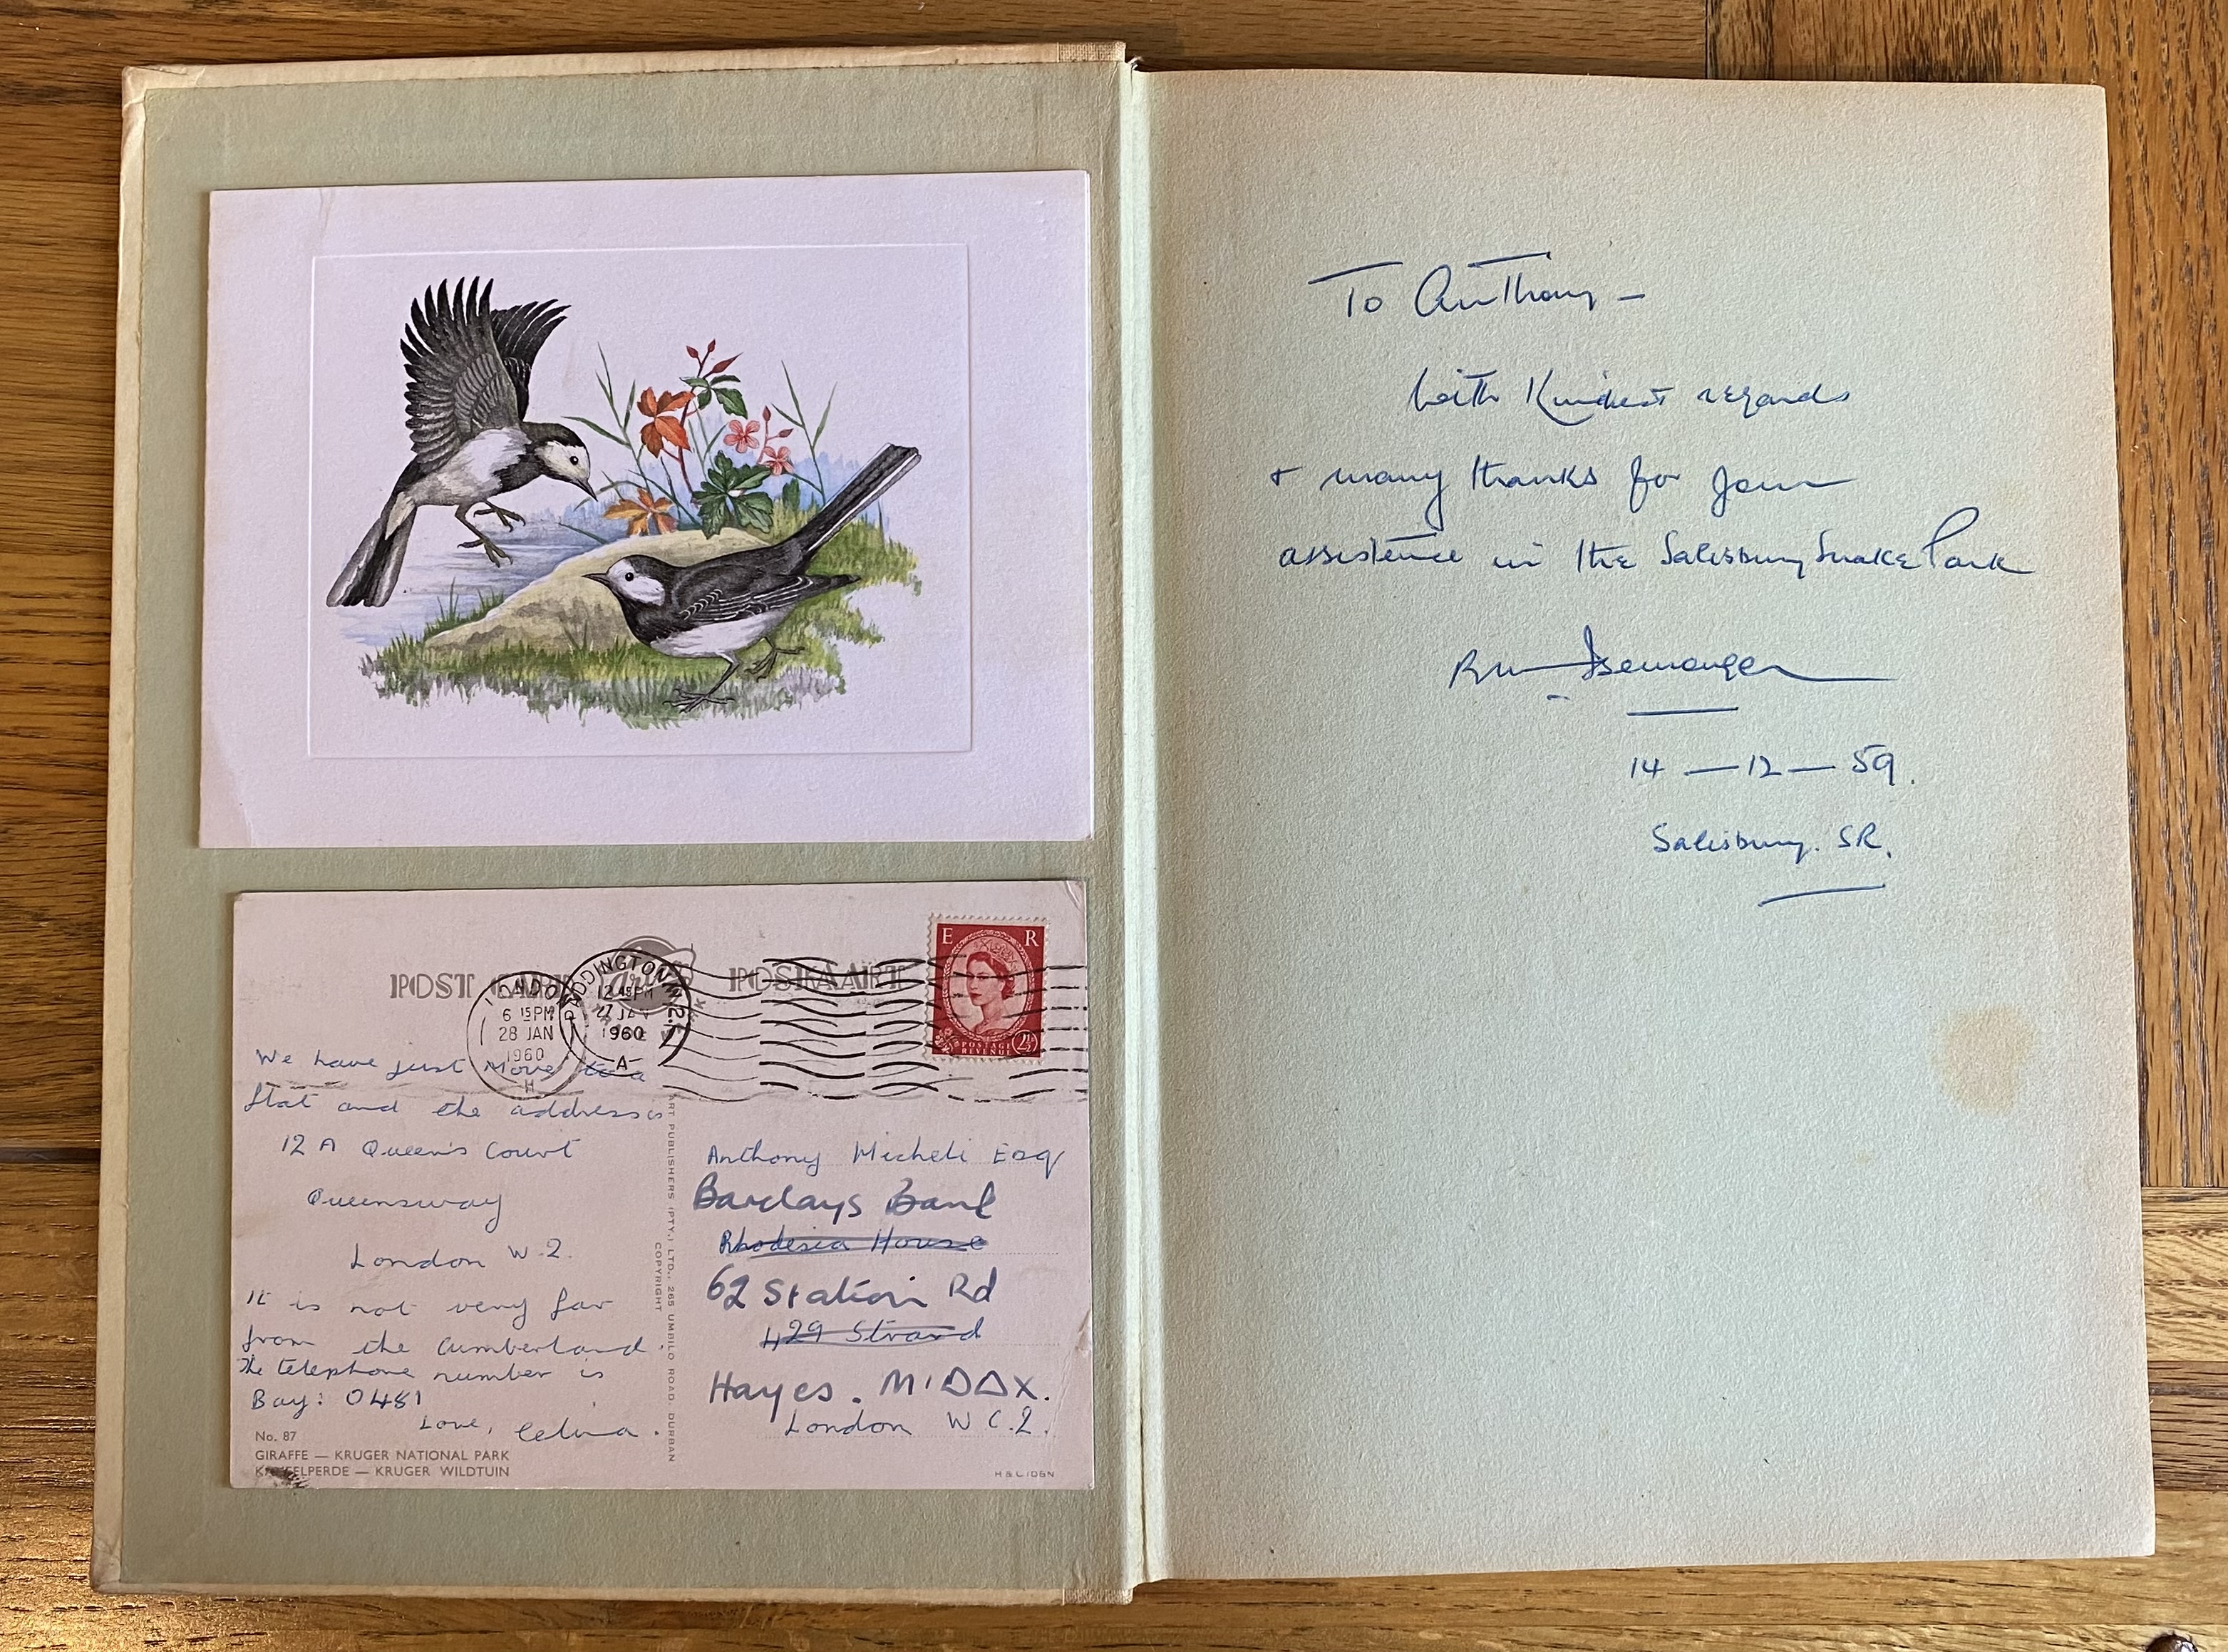 POST CARD
POSKAART
E R
POSTAGE
REVENUE
2½
LONDON
6 15PM
28 JAN
1960
H
PADDINGTON W.2.
12 45PM
27 JAN
1960
A
We have just Move to a
flat and the address is
12 A Queen's Court
Queensway
London W.2.
It is not very far
from the Cumberland.
The telephone number is
Bay: 0481
Love, Celina.
No. 87
GIRAFFE — KRUGER NATIONAL PARK
KAMEELPERDE — KRUGER WILDTUIN
ART PUBLISHERS (PTY.) LTD., 265 UMBILO ROAD, DURBAN
COPYRIGHT
Anthony Micheli Esq
Barclays Bank
Rhodesia House
62 Station Rd
429 Strand
Hayes. MIDDX.
London W C.2.
To Anthony —
With Kindest regards
+ many thanks for your
assistence in the Salisbury Snake Park
14 — 12 — 59.
Salisbury. SR.